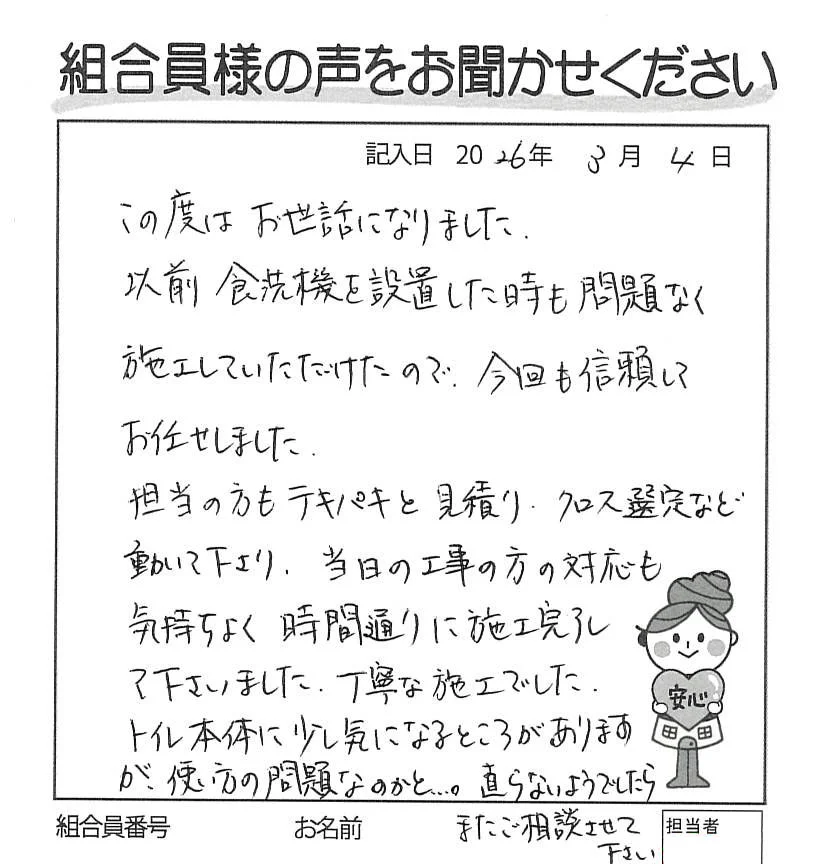 組合員様の声をお聞かせください
記入日 2026年 3月 4日
この度は お世話になりました.
以前 食洗機を設置した時も問題なく
施工していただけたので、今回も信頼して
お任せしました.
担当の方もテキパキと見積り、クロス選定など
動いて下さり、当日の工事の方の対応も
気持ちよく 時間通りに施工完了し
て下さいました. 丁寧な施工でした.
トイレ本体に少し気になるところがあります
が、使い方の問題なのかと…。直らないようでしたら
またご相談させて
下さい
安心
組合員番号 お名前 担当者